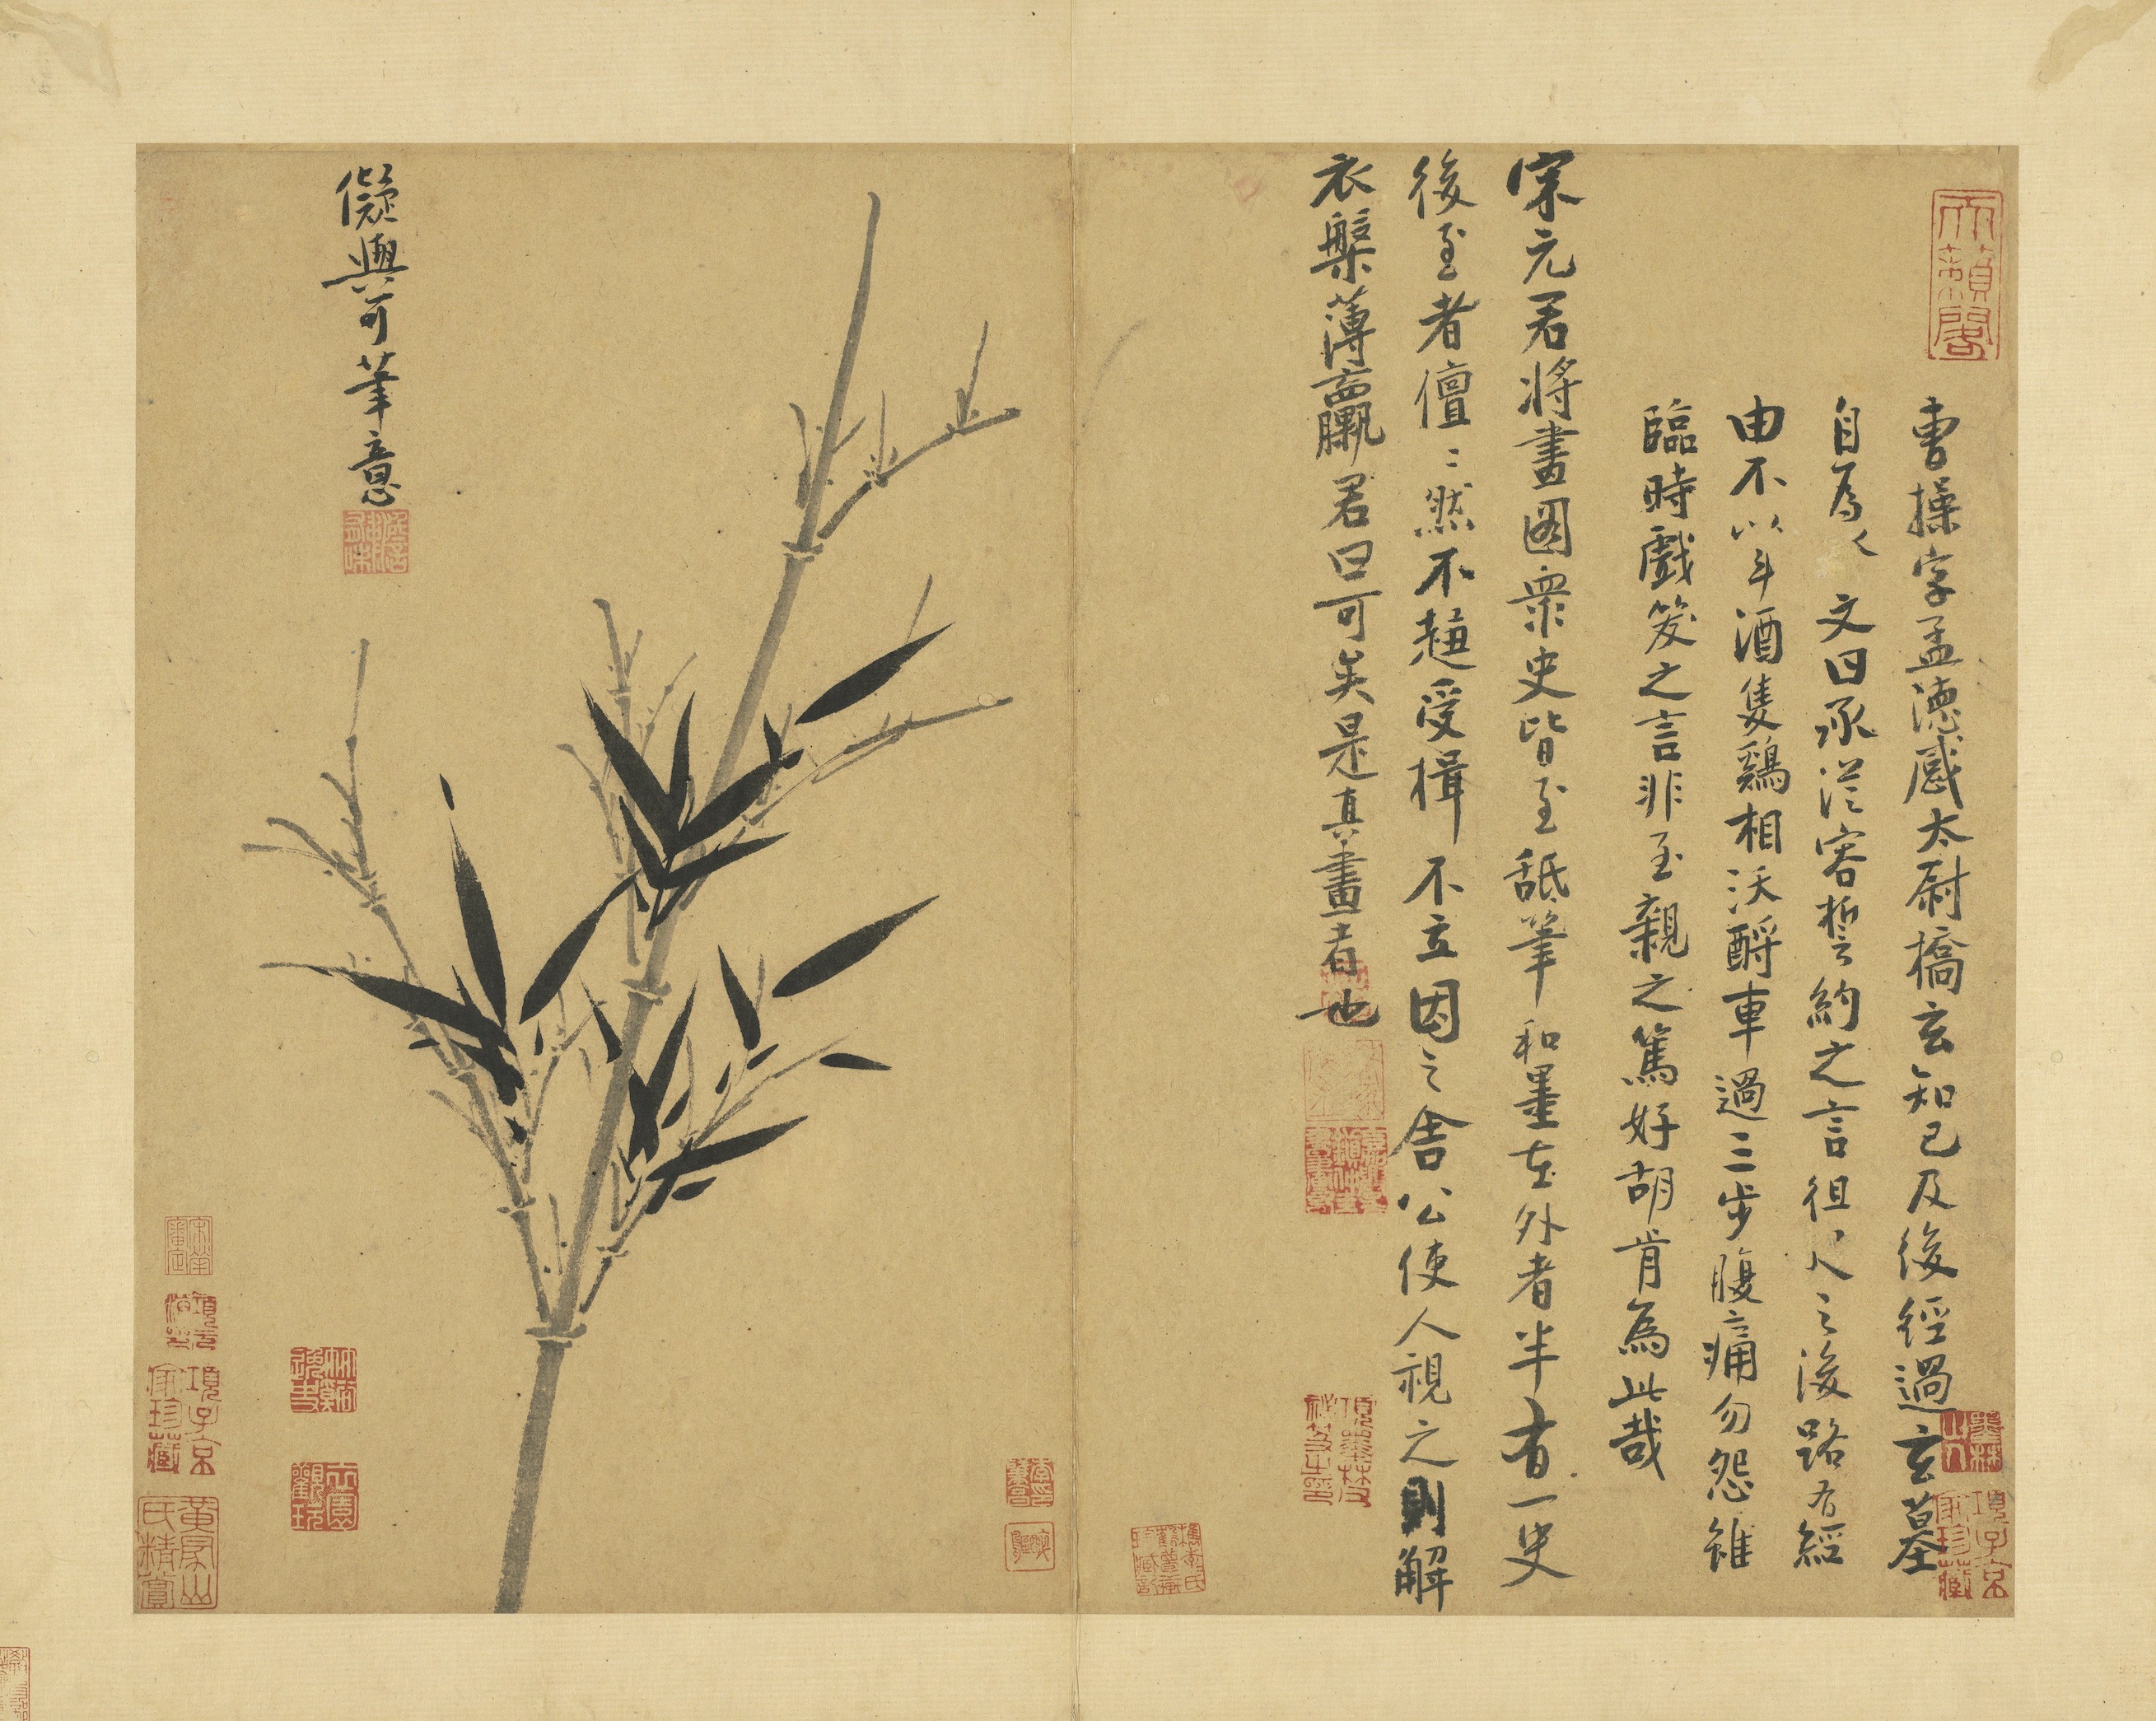 曹操字孟德感太尉橋玄知己及後經過玄墓
自為文曰承從容誓約之言徂之後路有經
由不以斗酒隻鷄相沃酹車過三步腹痛勿怨雖
臨時戲笑之言非至親之篤好胡肯為此哉
宋元君將畫圖衆史皆至舐筆和墨在外者半有一史
後至者儃〻然不趨受揖不立因之舍公使人視之則解
衣槃薄臝君曰可矣是真畫者也
儗與可筆意
天籟閣
項子京家珍藏
墨林山人
項子京家珍藏